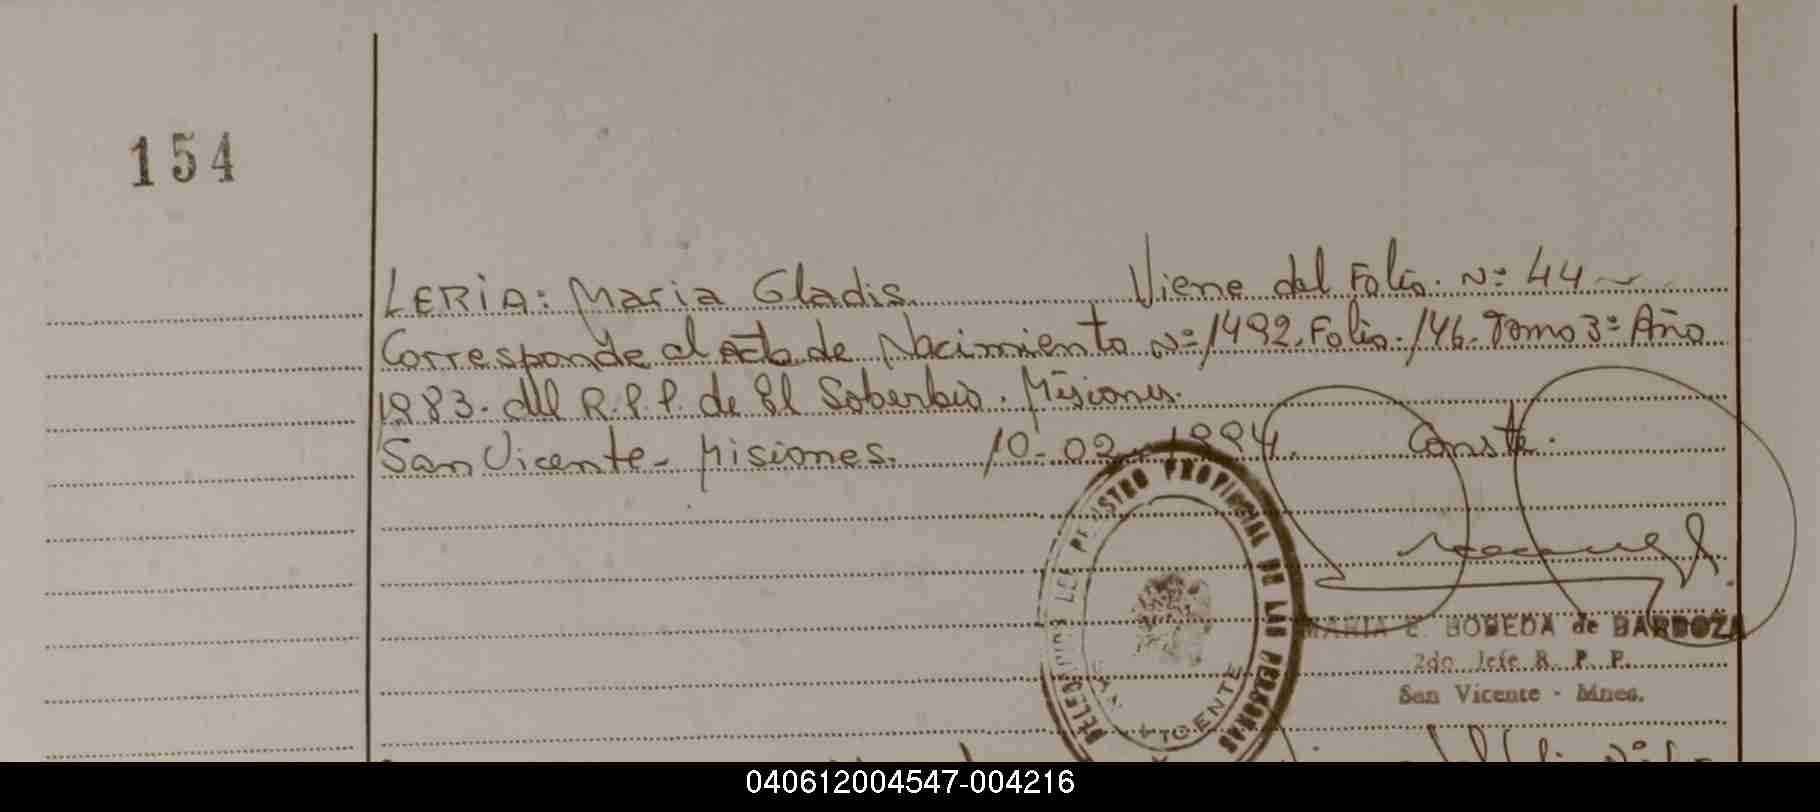 154
LERIA: Maria Gladis. Viene del Folio. Nº 44
Corresponde al acta de Nacimiento Nº 1492. Folio. 146. Tomo 3º Año
1983. del R.P.P. de El Soberbio. Misiones.
San Vicente - Misiones. 10-02-1994. Conste.
REGISTRO PROVINCIAL DE LAS PERSONAS
VICENTE
MARIA E. BOBEDA de BARDOZA
2do. Jefe R. P. P.
San Vicente - Mnes.
040612004547-004216